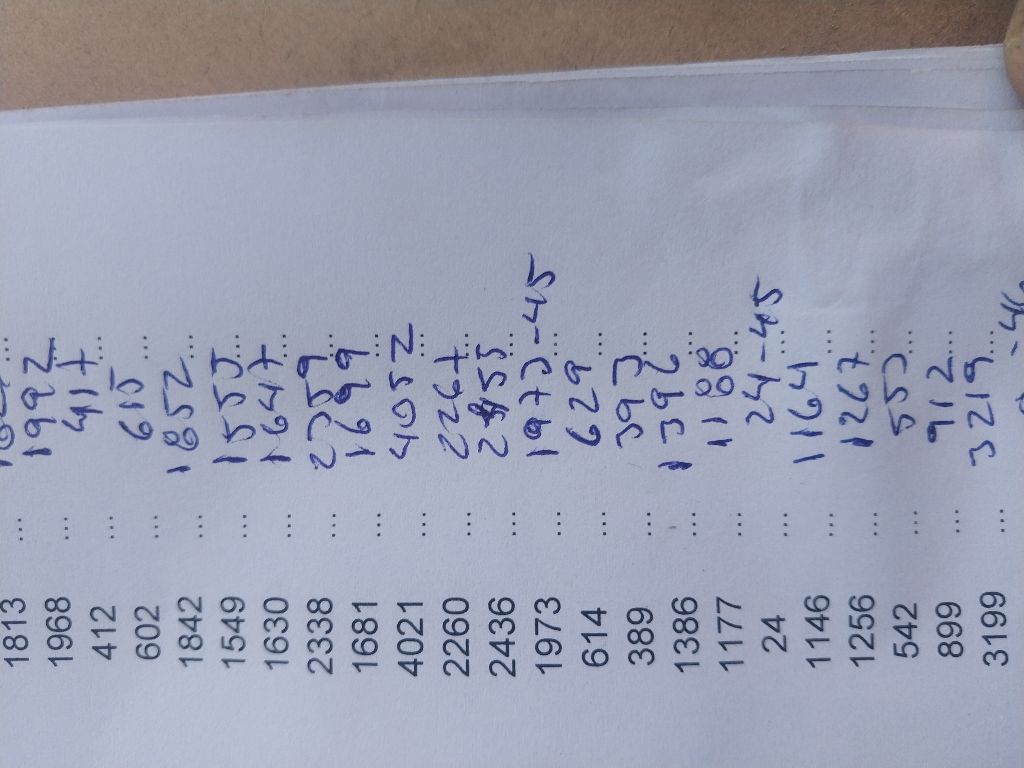 1813 ... ...
1968 ... 1992 ...
412 ... 417 ...
602 ... 615 ...
1842 ... 1852 ...
1549 ... 1553 ...
1630 ... 1647 ...
2338 ... 2359 ...
1681 ... 1699 ...
4021 ... 4052 ...
2260 ... 2267 ...
2436 ... 2455 ...
1973 ... 1973-45 ...
614 ... 629 ...
389 ... 393 ...
1386 ... 1392 ...
1177 ... 1188 ...
24 ... 24-45 ...
1146 ... 1164 ...
1256 ... 1267 ...
542 ... 553 ...
899 ... 912 ...
3199 ... 3219 ...